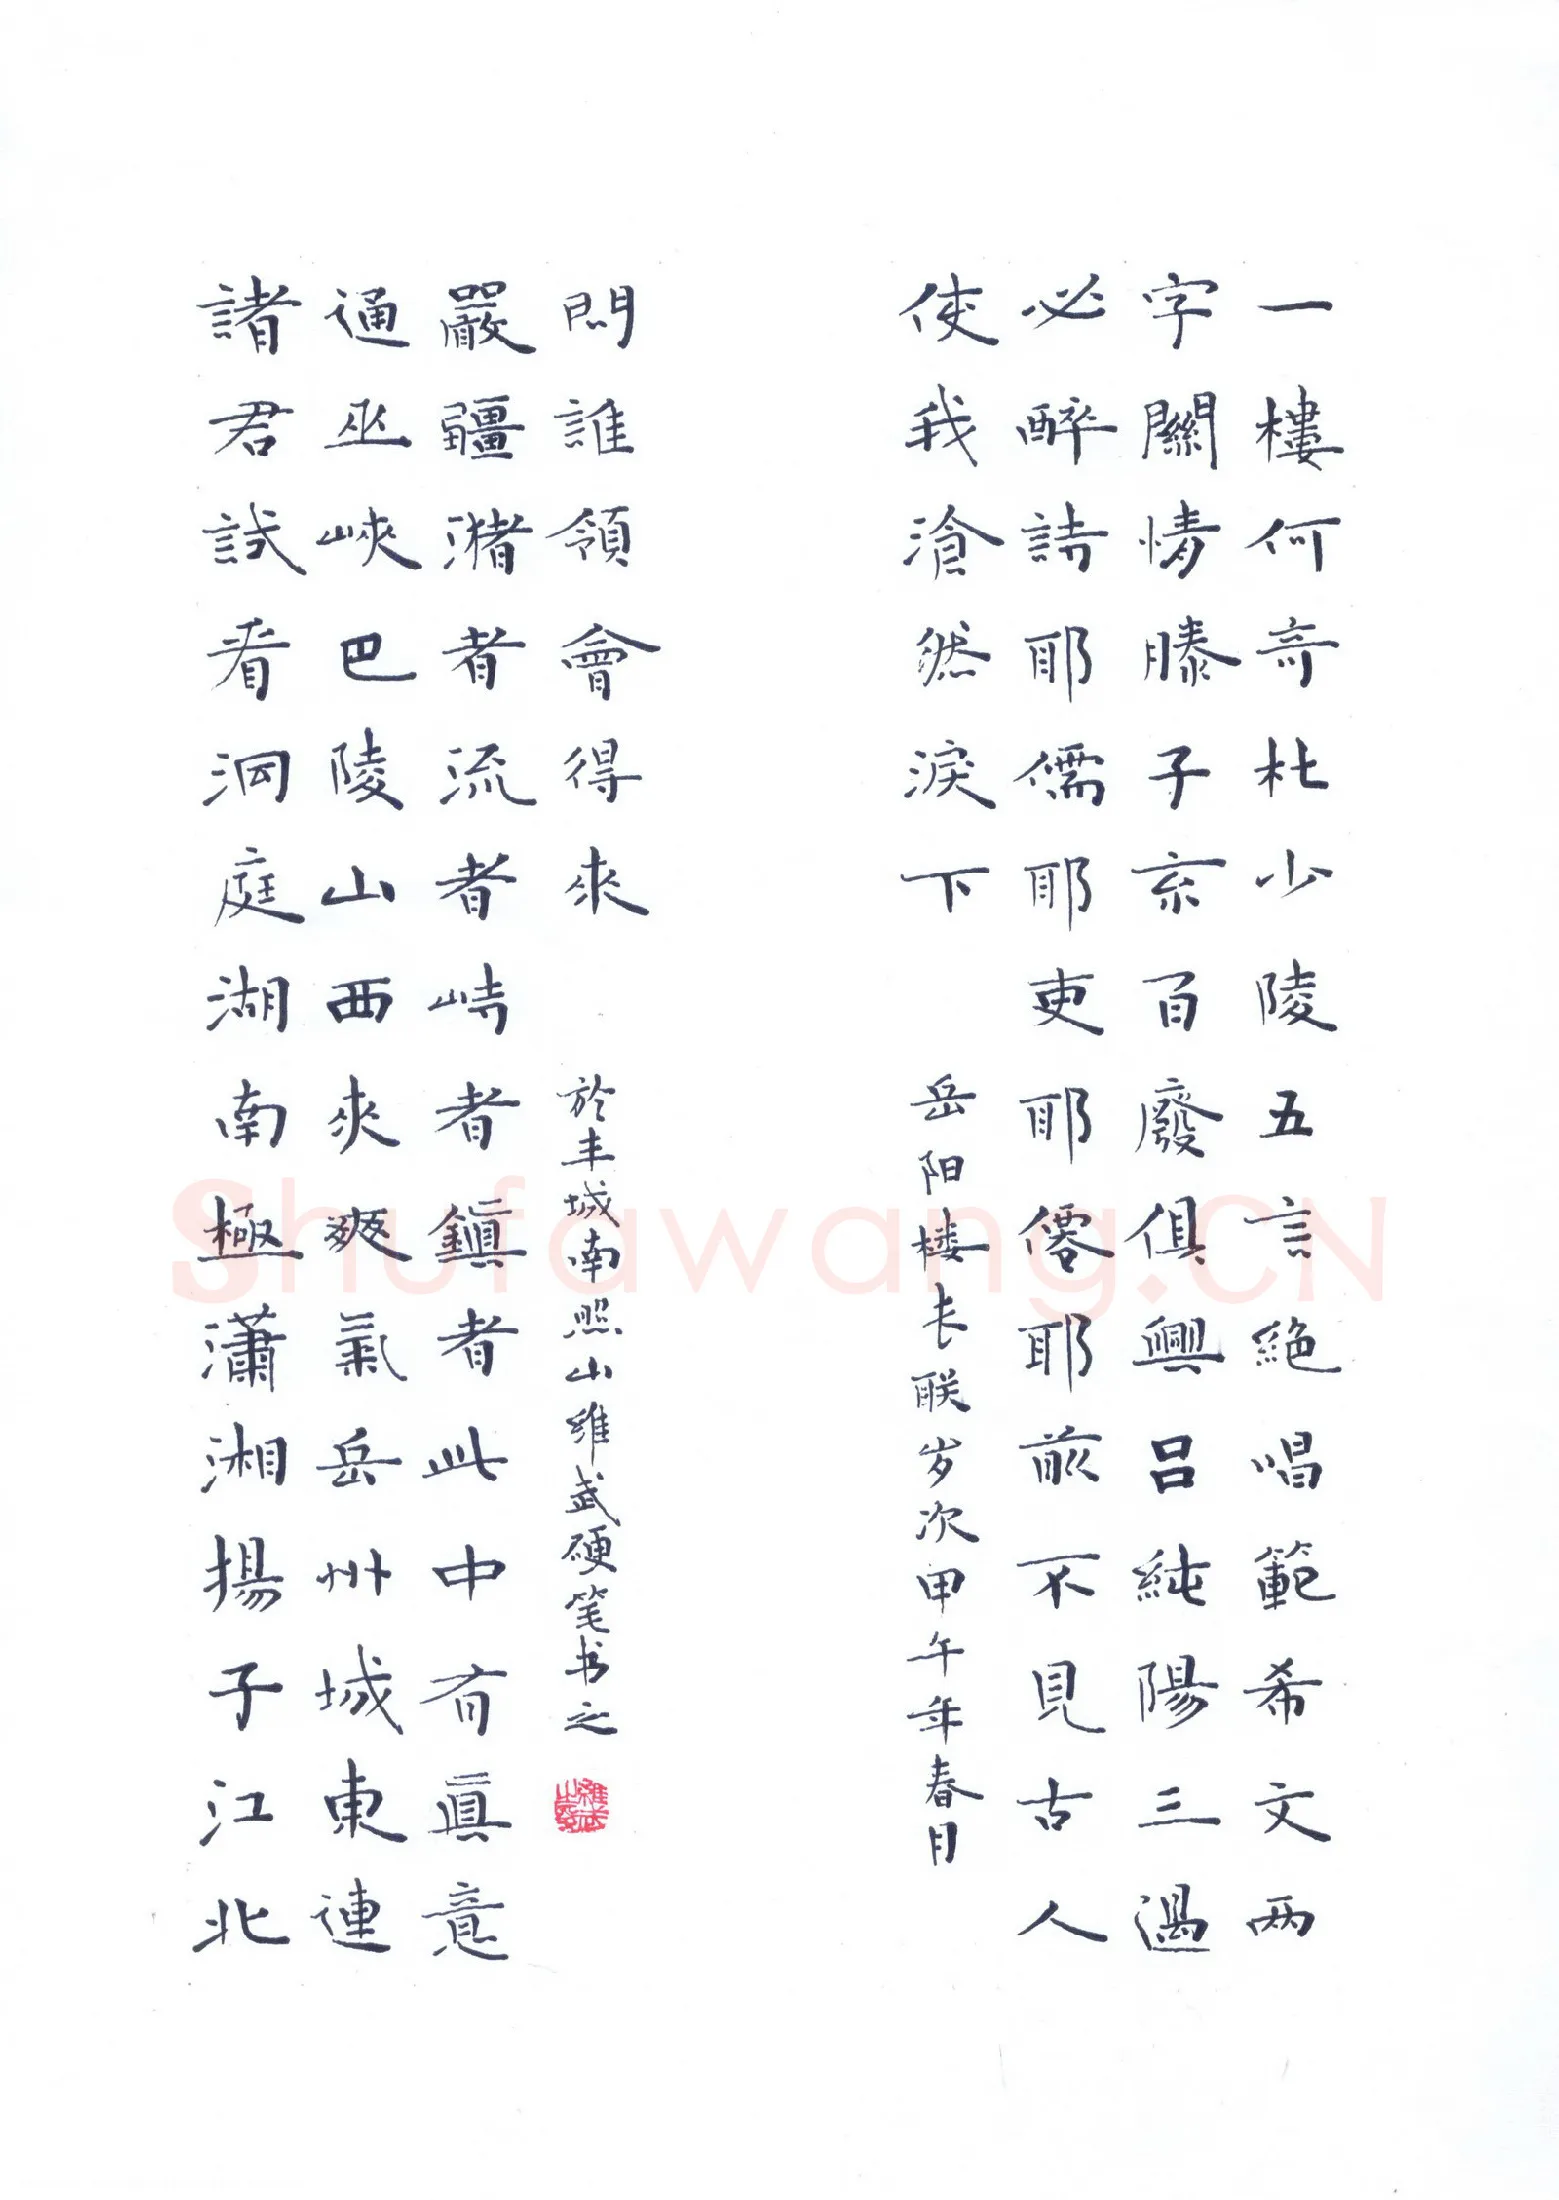 一樓何奇杜少陵五言絕唱範希文两
字關情滕子京百廢俱興吕純陽三過
必醉詩耶儒耶吏耶僊耶前不見古人
使我滄然淚下
岳阳楼长联岁次甲午年春月
諸君試看洞庭湖南極瀟湘揚子江北
通巫峽巴陵山西來爽氣岳州城東連
嚴疆瀦者流者峙者鎮者此中有眞意
問誰領會得來
於丰城南照山维武硬笔书之
Shufawang.CN